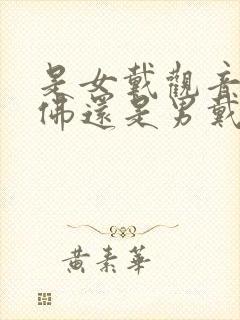 是女戴觀音
佛還是男戴
黃素華